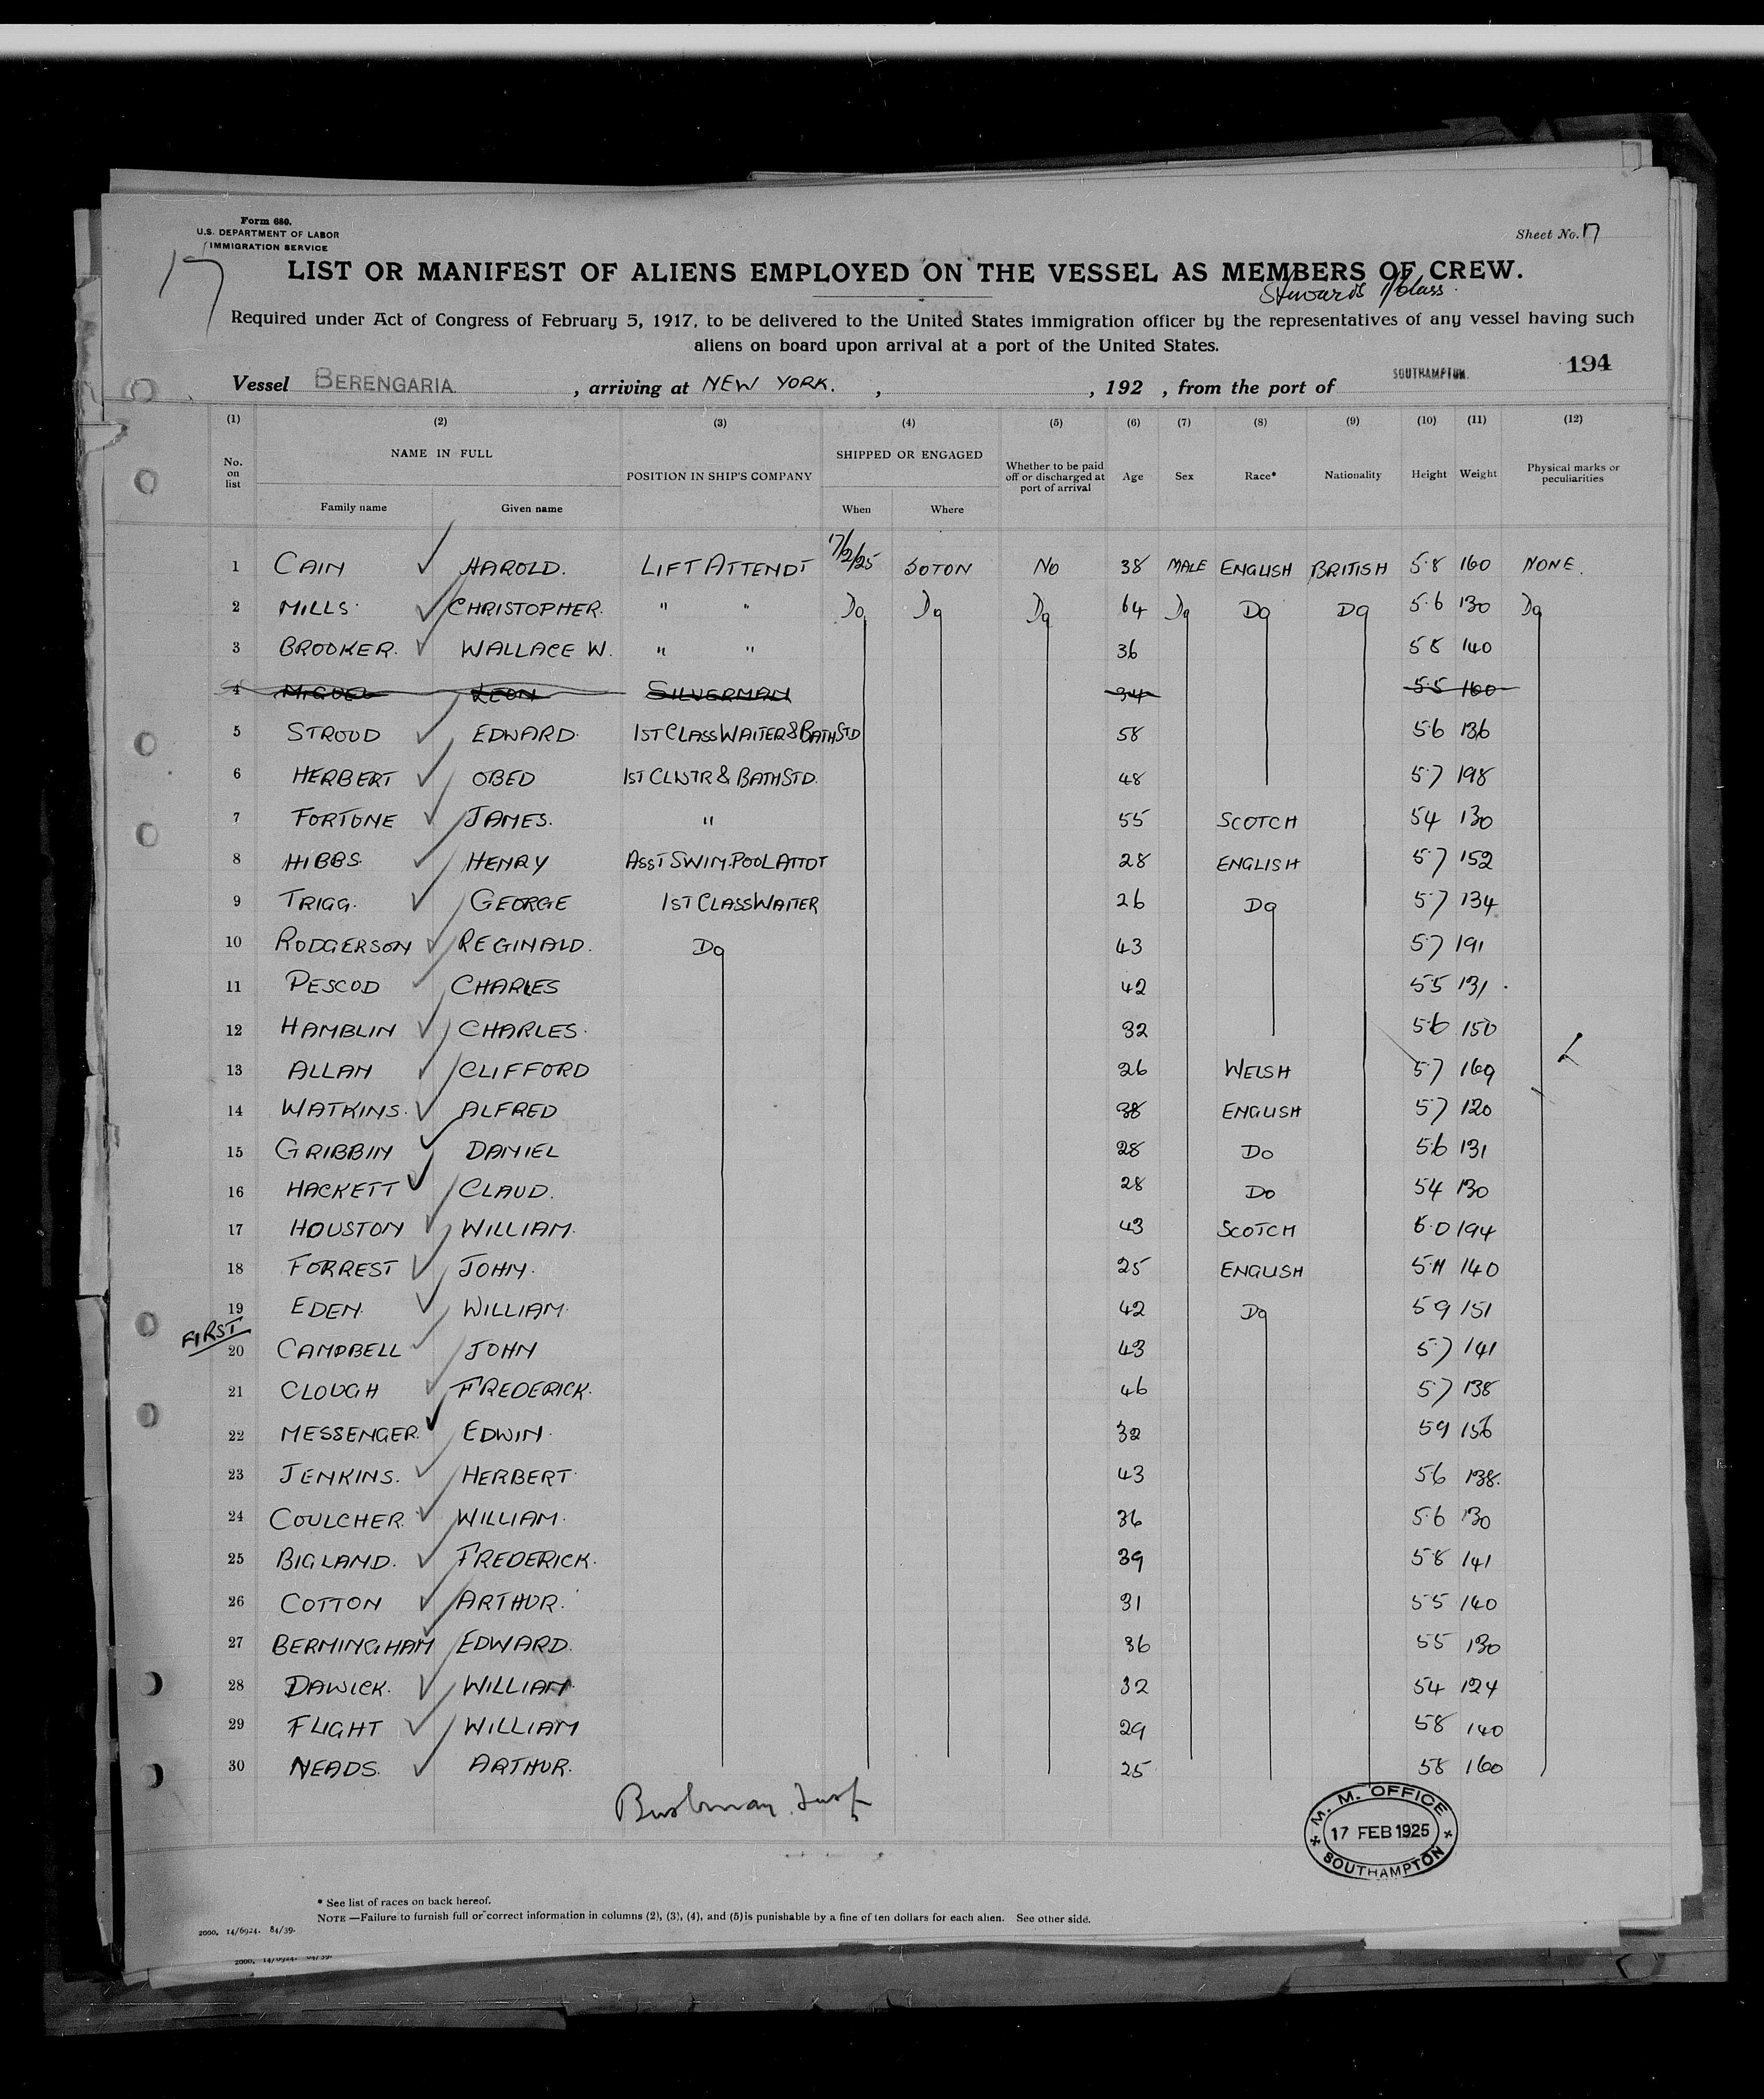 Form 680.
U.S. DEPARTMENT OF LABOR
IMMIGRATION SERVICE
Sheet No. 17
17
LIST OR MANIFEST OF ALIENS EMPLOYED ON THE VESSEL AS MEMBERS OF CREW.
Stewards 1/Class.
Required under Act of Congress of February 5, 1917, to be delivered to the United States immigration officer by the representatives of any vessel having such
aliens on board upon arrival at a port of the United States.
194
Vessel BERENGARIA, arriving at NEW YORK. , , 192 , from the port of SOUTHAMPTON.
(1) (2) (3) (4) (5) (6) (7) (8) (9) (10) (11) (12)
No. on list NAME IN FULL POSITION IN SHIP'S COMPANY SHIPPED OR ENGAGED Whether to be paid off or discharged at port of arrival Age Sex Race* Nationality Height Weight Physical marks or peculiarities
Family name Given name When Where
1 CAIN HAROLD. LIFT ATTENDT 17/2/25 SOTON NO 38 MALE ENGLISH BRITISH 5.8 160 NONE.
2 MILLS. CHRISTOPHER. " " Do Do Do 64 Do Do Do 5.6 130 Do
3 BROOKER. WALLACE W. " " 36 5 8 140
4 MIGUEL LEON SILVERMAN 34 5.5 160
5 STROUD EDWARD. 1ST CLASS WAITER & BATH STD 58 5.6 136
6 HERBERT OBED 1ST CL WTR & BATH STD. 48 5.7 198
7 FORTUNE JAMES. " 55 SCOTCH 5 4 130
8 HIBBS. HENRY ASST SWIM. POOL ATTDT 28 ENGLISH 5.7 152
9 TRIGG. GEORGE 1ST CLASS WAITER 26 Do 5.7 134
10 RODGERSON REGINALD. Do 43 5.7 191
11 PESCOD CHARLES 42 5.5 131.
12 HAMBLIN CHARLES. 32 5.6 150
13 ALLAN CLIFFORD 26 WELSH 5.7 169
14 WATKINS. ALFRED 38 ENGLISH 5.7 120
15 GRIBBIN DANIEL 28 Do 5.6 131
16 HACKETT CLAUD. 28 Do 5 4 130
17 HOUSTON WILLIAM. 43 SCOTCH 6.0 194
18 FORREST JOHN. 25 ENGLISH 5.11 140
19 EDEN. WILLIAM. 42 Do 5 9 151
FIRST
20 CAMPBELL JOHN 43 5.7 141
21 CLOUGH FREDERICK. 46 5.7 138
22 MESSENGER. EDWIN. 32 5 9 156
23 JENKINS. HERBERT. 43 5.6 138.
24 COULCHER. WILLIAM. 36 5.6 130
25 BIGLAND. FREDERICK. 39 5.8 141
26 COTTON ARTHUR. 31 5.5 140
27 BERMINGHAM EDWARD. 36 5 5 130
28 DAWICK. WILLIAM. 32 5 4 124
29 FLIGHT WILLIAM 29 5 8 140
30 NEADS. ARTHUR. 25 5 8 160
M. M. OFFICE
17 FEB 1925
SOUTHAMPTON
* See list of races on back hereof.
NOTE—Failure to furnish full or correct information in columns (2), (3), (4), and (5) is punishable by a fine of ten dollars for each alien. See other side.
2000. 14/6924. 84/39.
2000. 14/6924. 84/39.